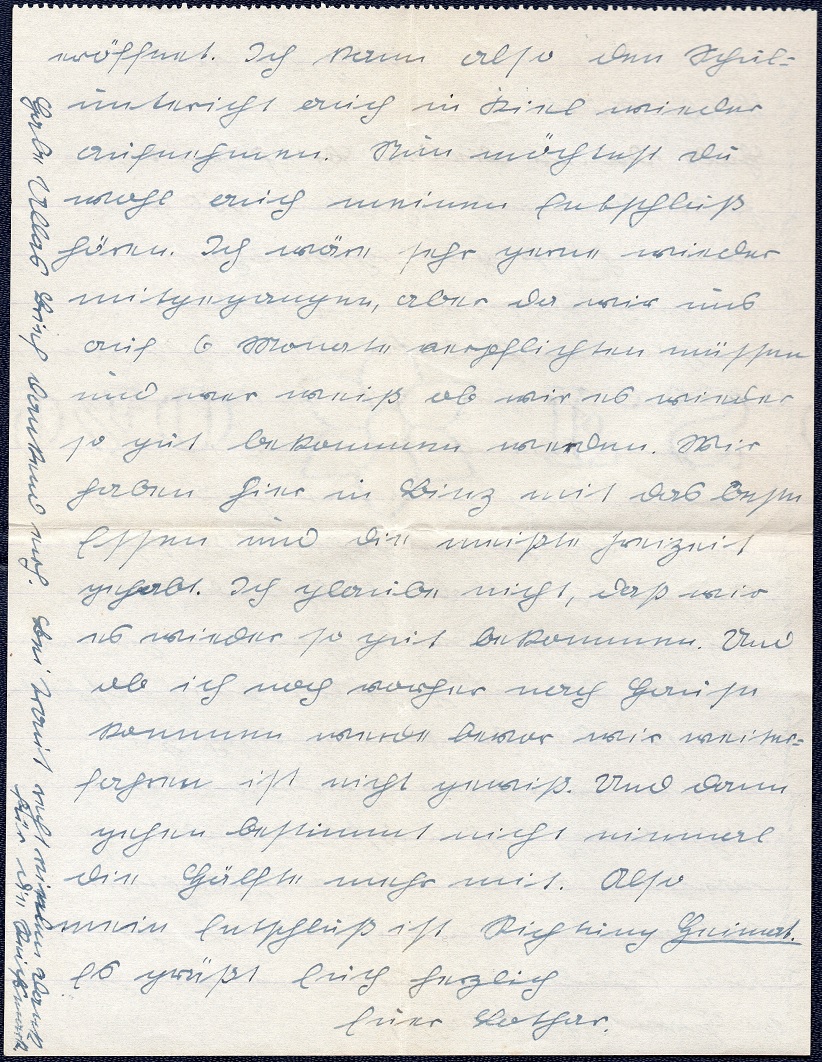 eröffnet. Ich kann also den Schul-
unterricht auch in Kiel wieder
aufnehmen. Nun möchtest du
wohl auch meinen Entschluß
hören. Ich wäre sehr gerne wieder
mitgegangen, aber da wir uns
auf 6 Monate verpflichten müssen
und wer weiß ob wir es wieder
so gut bekommen werden. Wir
haben hier in Binz mit das beste
Essen und die meißte Freizeit
gehabt. Ich glaube nicht, daß wir
es wieder so gut bekommen. Und
ob ich noch vorher nach Hause
kommen werde bevor wir weiter-
fahren ist nicht gewiß. Und dann
gehen bestimmt nicht einmal
die Hälfte mehr mit. Also
mein Entschluß ist Richtung Heimat.
Es grüßt Euch herzlich
Euer Lothar.
Habe Ullas Brief dankend
für die